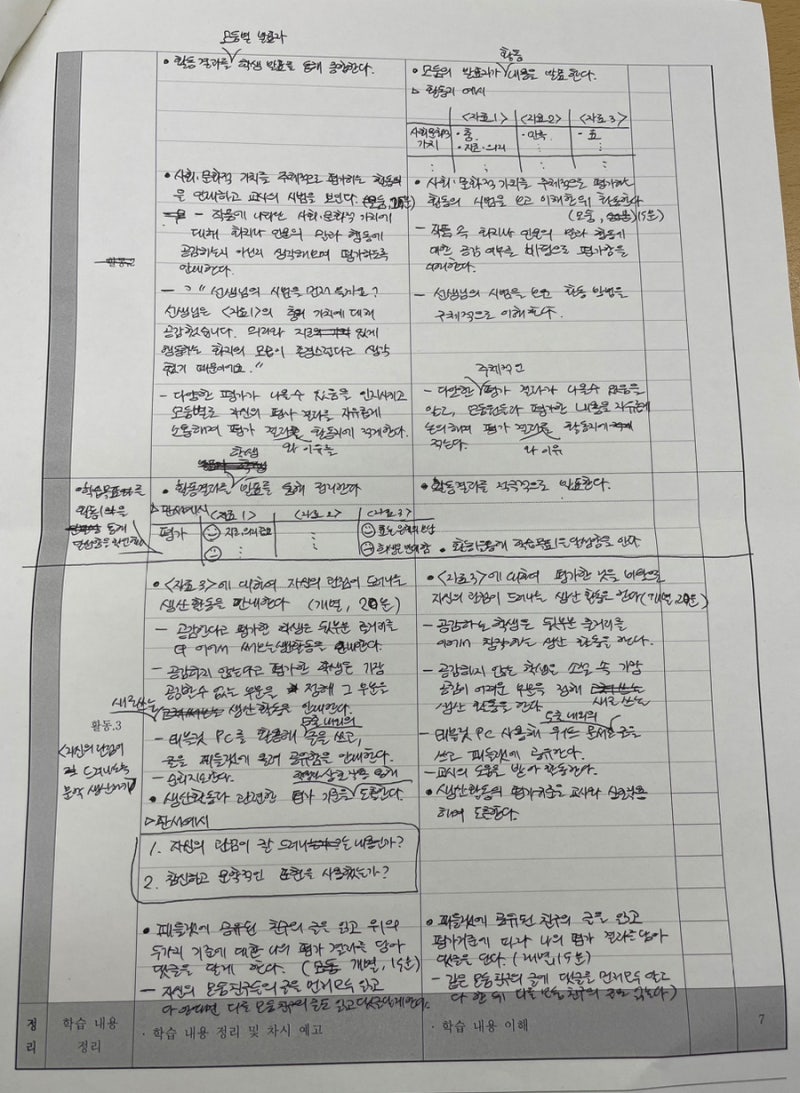 모둠별 발표과
• 활동 결과를 학생 발표를 통해 종합한다.
활동
• 모둠의 발표자가 내용을 발표한다.
▷ 활동지 예시
<자료1> <자료2> <자료3>
사회·문화적 가치
• 충
• 지조·의리
• 민족
• 효
• 사회·문화적 가치를 주체적으로 평가하는 활동의
을 안내하고 교사의 시범을 보인다.
- 작품에 나타난 사회·문화적 가치에
대해 화자나 인물의 말과 행동에
공감하는지 아닌지 생각해보며 평가하도록
안내한다.
- "선생님의 시범을 먼저 볼까요?
선생님은 <자료1>의 충의 가치에 대해
공감했습니다. 의리와 지조 있게
행동하는 화자의 모습이 존경스럽다고 생각
했기 때문이에요."
- 다양한 평가가 나올 수 있음을 인지시키고
모둠별로 자신의 평가 결과를 자유롭게
논의하며 평가 결과를 활동지에 적게 한다.
와 이유를
• 사회·문화적 가치를 주체적으로 평가하는
활동의 시범을 보고 이해한 뒤 활동한다
(모둠, 15분)
- 작품 속 화자나 인물의 말과 행동에
대한 공감 여부를 바탕으로 평가함을
이해한다.
- 선생님의 시범을 보면 활동 방법을
구체적으로 이해한다.
주체적인
- 다양한 평가 결과가 나올 수 있음을
알고, 모둠원들과 평가한 내용을 자유롭게
논의하며 평가 결과를 활동지에
적는다.
와 이유
• 학습목표
활동1와을
통해
달성했음을 확인한다
학생
• 활동결과를 발표를 통해 정리한다
▷ 판서예시
<자료1> <자료2> <자료3>
평가
• 활동결과를 적극적으로 발표한다.
• 활동을 통해 학습목표1을 달성함을 안다
활동.3
<자신의 관점이
잘 드러나는
문학 생산하기>
• <자료3>에 대하여 자신의 관점이 드러나는
생산 활동을 안내한다 (개별, 20분)
- 공감한다고 평가한 학생은 뒷부분 줄거리를
이어서 써보는 생산활동을 안내한다.
- 공감하지 않는다고 평가한 학생은 가장
공감할 수 없는 부분을 정해 그 부분을
새로쓰는 생산 활동을 안내한다.
5줄 내외의
- 태블릿 PC를 활용해 글을 쓰고,
글을 패들렛에 올려 공유함을 안내한다.
- 순회지도한다.
상호작용을 통해
• 생산활동과 관련한 평가 기준을 도출한다.
▷ 판서예시
1. 자신의 관점이 잘 드러나는 내용인가?
2. 참신하고 문학적인 표현을 사용했는가?
• <자료3>에 대하여 평가한 것을 바탕으로
자신의 관점이 드러나는 생산 활동을 한다 (개별 20분)
- 공감하는 학생은 뒷부분 줄거리를
이어서 창작하는 생산 활동을 한다.
- 공감하지 않는 학생은 소설 속 가장
공감이 어려운 부분을 정해 새로 쓰는
생산 활동을 한다
5줄 내외의
- 태블릿 PC 사용해 워드 문서에 글을
쓰고 패들렛에 공유한다.
- 교사의 도움을 받아 활동한다.
• 생산활동의 평가기준을 교사와 상호작용
하며 도출한다.
• 패들렛에 공유된 친구의 글을 읽고 위의
두가지 기준에 대한 나의 평가 결과를 담아
댓글을 달게 한다. (개별, 15분)
- 자신의 모둠 친구들의 글을 먼저 모두 읽고
다 읽으면 다른 모둠 친구의 글도 읽고 댓글 달게 한다.
• 패들렛에 공유된 친구의 글을 읽고
평가기준에 따라 나의 평가 결과를 담아
댓글을 단다. (개별, 15분)
- 같은 모둠 친구의 글에 댓글을 먼저 모두 달고
다 한 뒤 다른 모둠 친구의 글도 읽는다
정리
학습 내용 정리
· 학습 내용 정리 및 차시 예고
· 학습 내용 이해
7